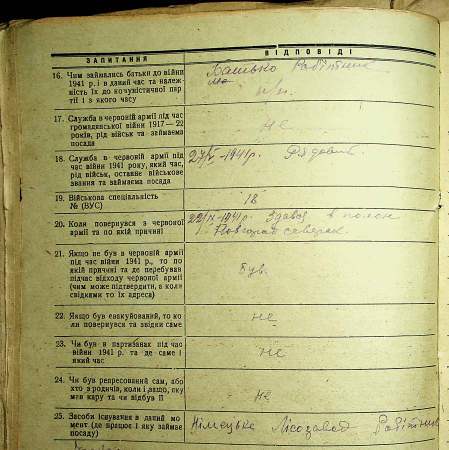 ЗАПИТАННЯ
ВІДПОВІДІ
16. Чим займались батьки до війни
1941 р. і в даний час та належ-
ність їх до комуністичної пар-
тії і з якого часу
Батько Робітник
н/п.
17. Служба в червоній армії під час
громадянської війни 1917—22
років, рід військ та займаєма
посада
не
18. Служба в червоній армії під
час війни 1941 року, який час,
рід військ, останнє військове
звання та займаєма посада
1941р. Рядовий.
19. Військова спеціальність
№ (ВУС)
18
20. Коли повернувся з червоної
армії та по якій причині
1941р. Здався в полон
Новгород северск.
21. Якщо не був в червоній армії
під час війни 1941 р., то по
якій причині та де перебував
підчас відходу червоної армії
(чим може підтвердити, а коли
свідками то їх адреса)
був.
22. Якщо був евакуйований, то ко-
ли повернувся та звідки саме
не
23. Чи був в партизанах під час
війни 1941 р. та де саме і
який час
не
24. Чи був репресований сам, або
хто з родичів, коли і защо, яку
мав кару та чи відбув її
не
25. Засоби існування в даний мо-
мент (де працює і яку займає
посаду)
Німецьке Лісозавод Робітник